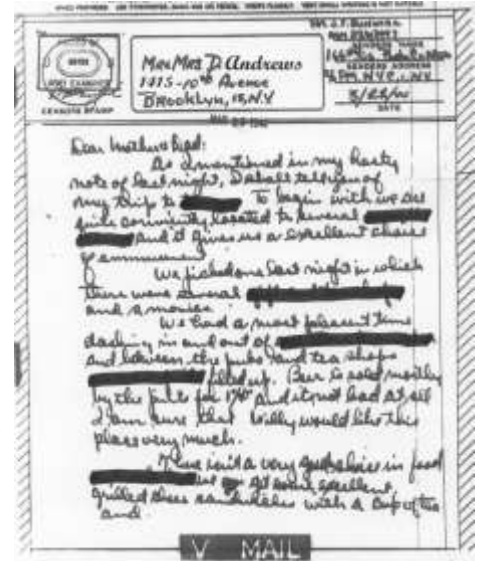 Mr & Mrs D. Andrews
1415-10th Avenue
Brooklyn, 15, N.Y.
SENDERS ADDRESS
DATE
CENSORS STAMP
Dear Mother & Dad:
As I mentioned in my hasty
note of last night, I shall tell you of
my trip to To begin with we are
quite conviently located to several
and it gives us a excellent choice
of ammusement
We picked one last night in which
there were several
and a movie.
We had a most pleasent time
dashing in and out of
and between the pubs and tea shops
filled up. Beer is sold mostly
by the pint for and its not bad at all
I am sure that Willy would like this
place very much.
There isn't a very good choice in food
but you get some excellent
grilled cheese sandwiches with a cup of tea
and
V MAIL